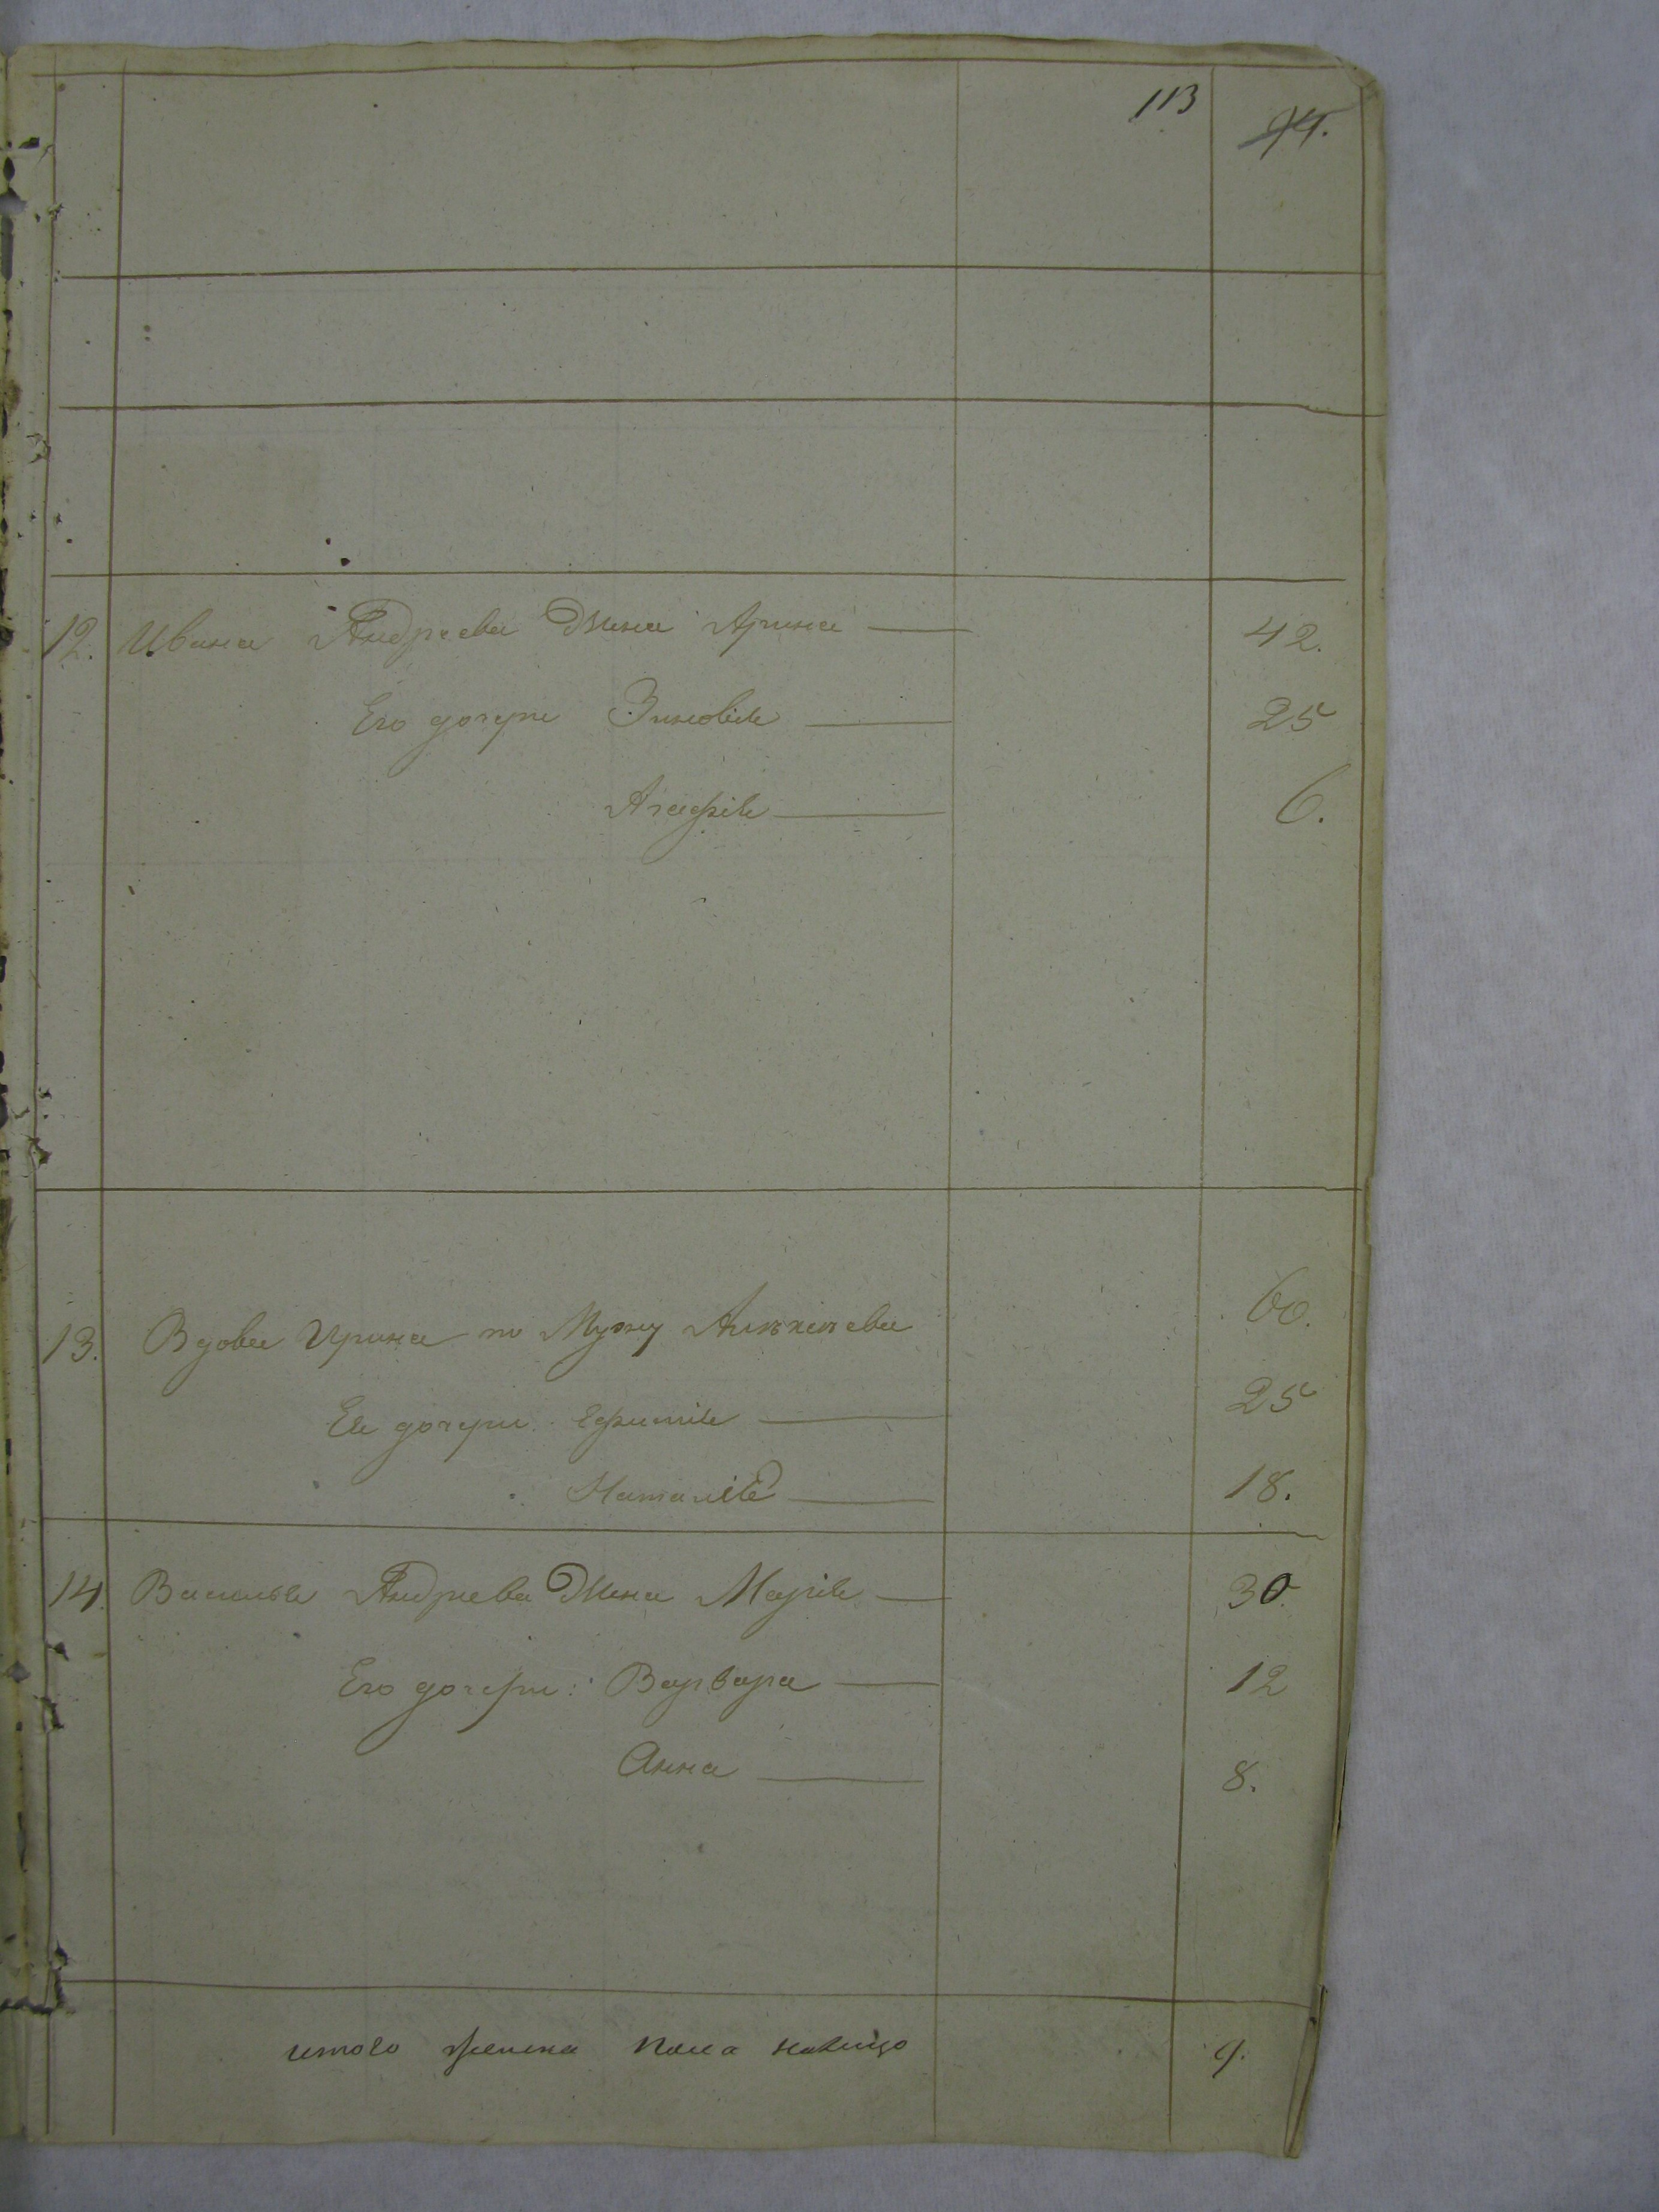 113
94.
12. Ивана Андреева Жена Арина — 42.
Его дочери Зиновія — 25
Агафія — 6.
13. Вдова Ирина по Мужу 60.
Ея дочери Ефимія — 25
Наталія — 18.
14. Василья Андреева Жена Марія — 30.
Его дочери: Варвара — 12
Анна — 8.
итого женска пола налицо 9.